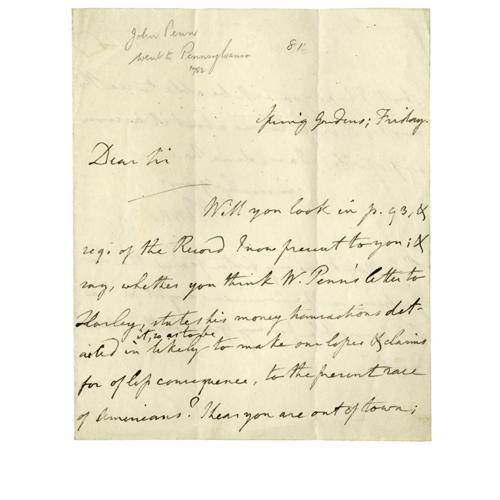 John Penn
went to Pennsylvania
1782
Spring Gardens; Friday.
Dear Sir
Will you look in p. 93, &
seq: of the Record I now present to you; &
say, whether you think W. Penn's letter to
Harley, states his money transactions det-
ailed in it, so as to be likely to make our loss & claims
for of less consequence, to the present race
of Americans? I hear you are out of town;